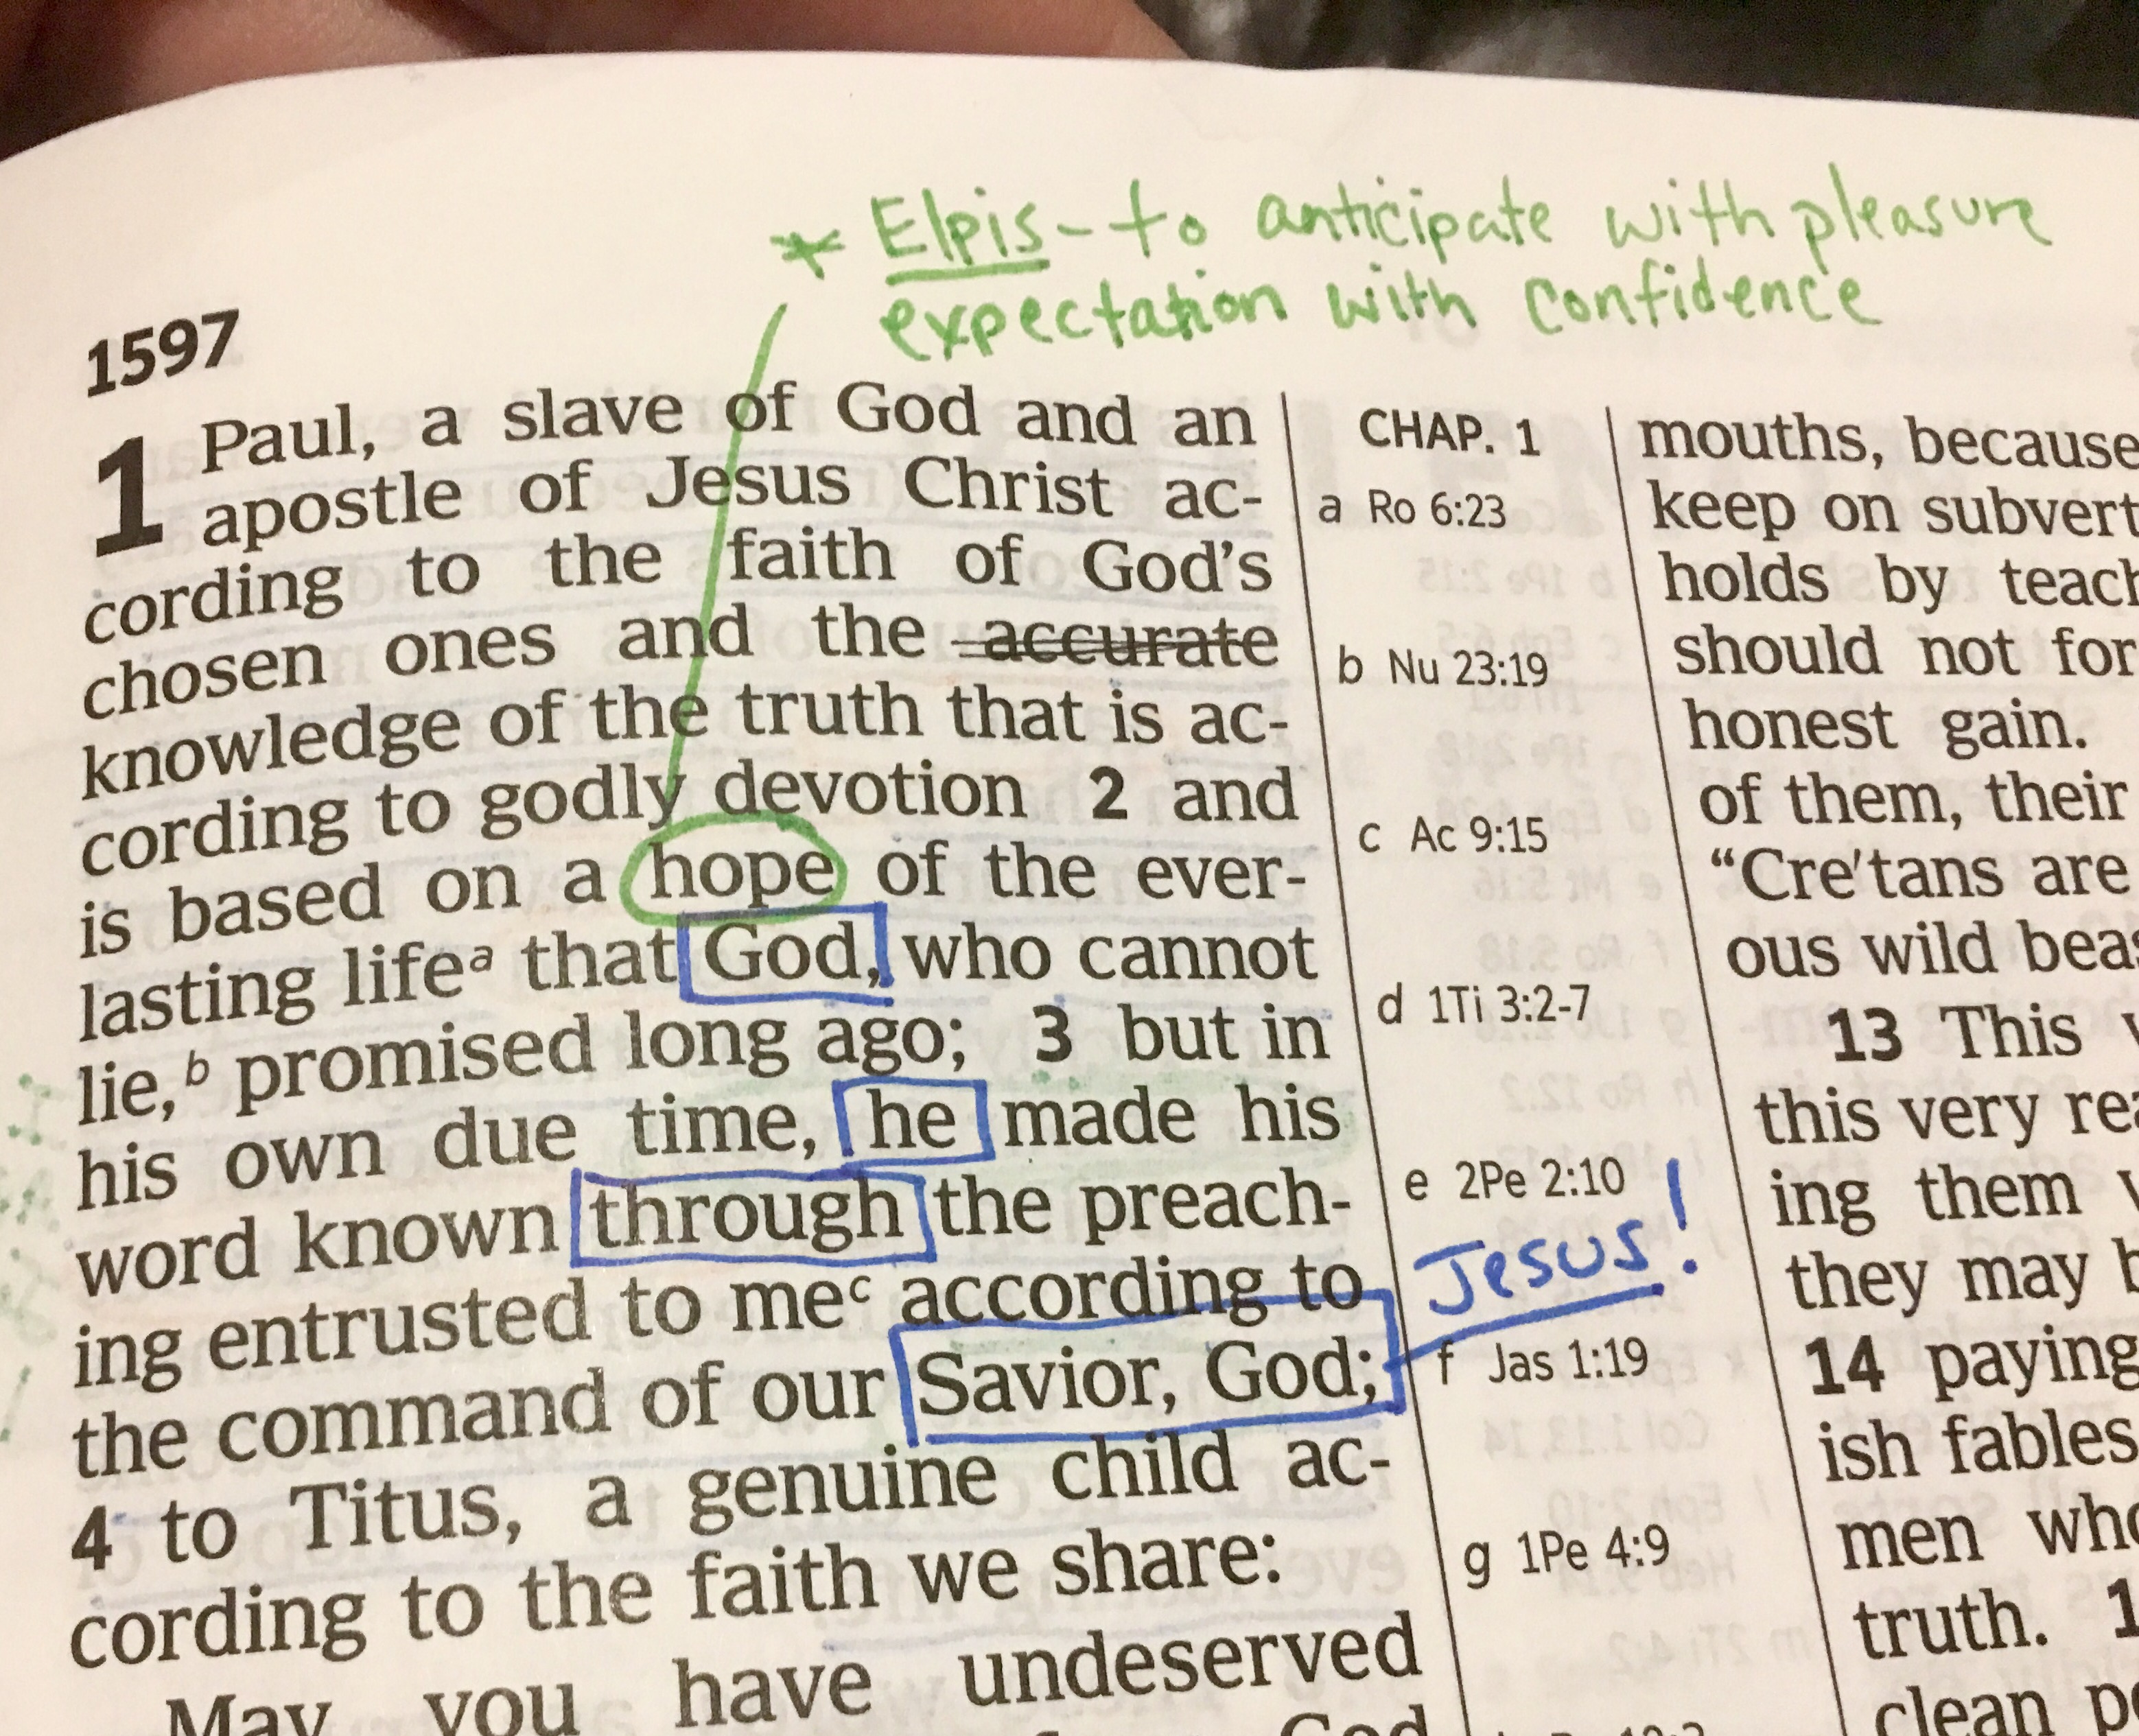 * Elpis - to anticipate with pleasure
expectation with confidence
1597
1 Paul, a slave of God and an
apostle of Jesus Christ ac-
cording to the faith of God's
chosen ones and the accurate
knowledge of the truth that is ac-
cording to godly devotion 2 and
is based on a hope of the ever-
lasting lifeᵃ that God, who cannot
lie,ᵇ promised long ago; 3 but in
his own due time, he made his
word known through the preach-
ing entrusted to meᶜ according to
the command of our Savior, God;
4 to Titus, a genuine child ac-
cording to the faith we share:
May you have undeserved
God
CHAP. 1
a Ro 6:23
b Nu 23:19
c Ac 9:15
d 1Ti 3:2-7
e 2Pe 2:10
Jesus!
f Jas 1:19
g 1Pe 4:9
mouths, because
keep on subvert
holds by teach
should not for
honest gain.
of them, their
“Cre′tans are
ous wild beas
13 This
this very rea
ing them
they may b
14 paying
ish fables
men who
truth. 1
clean